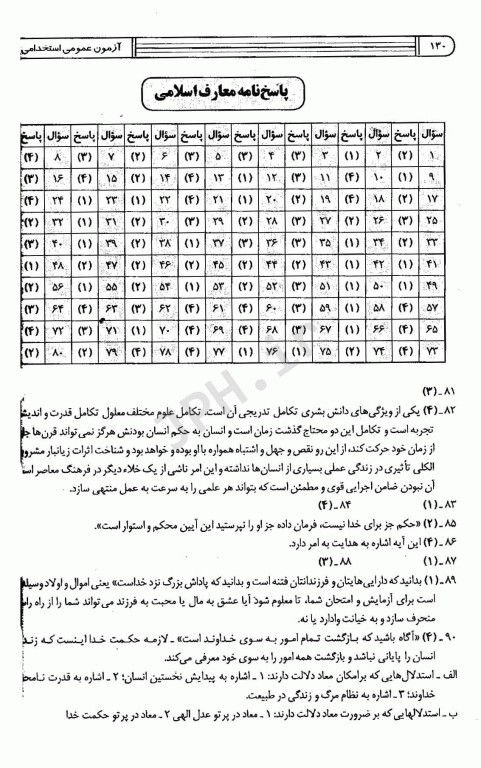 ۱۳۰ آزمون عمومی استخدامی
پاسخ‌نامه معارف اسلامی
سؤال پاسخ سؤال پاسخ سؤال پاسخ سؤال پاسخ سؤال پاسخ سؤال پاسخ سؤال پاسخ سؤال پاسخ
۱ (۲) ۲ (۱) ۳ (۳) ۴ (۳) ۵ (۳) ۶ (۲) ۷ (۳) ۸ (۴)
۹ (۱) ۱۰ (۴) ۱۱ (۳) ۱۲ (۱) ۱۳ (۴) ۱۴ (۲) ۱۵ (۴) ۱۶ (۳)
۱۷ (۲) ۱۸ (۴) ۱۹ (۲) ۲۰ (۱) ۲۱ (۴) ۲۲ (۱) ۲۳ (۱) ۲۴ (۴)
۲۵ (۳) ۲۶ (۲) ۲۷ (۳) ۲۸ (۲) ۲۹ (۳) ۳۰ (۲) ۳۱ (۱) ۳۲ (۲)
۳۳ (۲) ۳۴ (۱) ۳۵ (۳) ۳۶ (۳) ۳۷ (۱) ۳۸ (۲) ۳۹ (۱) ۴۰ (۳)
۴۱ (۱) ۴۲ (۱) ۴۳ (۲) ۴۴ (۲) ۴۵ (۲) ۴۶ (۲) ۴۷ (۲) ۴۸ (۱)
۴۹ (۱) ۵۰ (۱) ۵۱ (۳) ۵۲ (۲) ۵۳ (۱) ۵۴ (۲) ۵۵ (۱) ۵۶ (۲)
۵۷ (۴) ۵۸ (۱) ۵۹ (۳) ۶۰ (۴) ۶۱ (۳) ۶۲ (۴) ۶۳ (۴) ۶۴ (۳)
۶۵ (۴) ۶۶ (۱) ۶۷ (۳) ۶۸ (۴) ۶۹ (۴) ۷۰ (۱) ۷۱ (۳) ۷۲ (۴)
۷۳ (۴) ۷۴ (۲) ۷۵ (۱) ۷۶ (۱) ۷۷ (۴) ۷۸ (۴) ۷۹ (۲) ۸۰ (۲)
۸۱ـ (۳)
۸۲ـ (۴) یکی از ویژگی‌های دانش بشری تکامل تدریجی آن است. تکامل علوم مختلف معلول تکامل قدرت و اندیشه
تجربه است و تکامل این دو محتاج گذشت زمان است و انسان به حکم انسان بودنش هرگز نمی‌تواند قرن‌ها
از زمان خود حرکت کند، از این رو نقص و جهل و اشتباه همواره با او بوده و خواهد بود و شناخت اثرات زیانبار
الکلی تأثیری در زندگی عملی بسیاری از انسان‌ها نداشته و این امر ناشی از یک خلاء دیگر در فرهنگ معاصر است
آن نبودن ضامن اجرایی قوی و مطمئن است که بتواند هر علمی را به سرعت به عمل منتهی سازد.
۸۳ـ (۱) ۸۴ـ (۴)
۸۵ـ (۲) «حکم جز برای خدا نیست، فرمان داده جز او را نپرستید این آیین محکم و استوار است».
۸۶ـ (۴) این آیه اشاره به هدایت به امر دارد.
۸۷ـ (۱) ۸۸ـ (۳)
۸۹ـ (۱) بدانید که دارایی‌هایتان و فرزندانتان فتنه است و بدانید که پاداش بزرگ نزد خداست» یعنی اموال و اولاد وسیله
است برای آزمایش و امتحان شما، تا معلوم شود آیا عشق به مال یا محبت به فرزند می‌تواند شما را از راه
منحرف سازد و به خیانت وادارد یا نه.
۹۰ـ (۴) «آگاه باشید که بازگشت تمام امور به سوی خداوند است» ـ لازمه حکمت خدا اینست که
انسان را پایانی نباشد و بازگشت همه امور را به سوی خود معرفی می‌کند.
الف ـ استدلال‌هایی که بر امکان معاد دلالت دارند: ۱ـ اشاره به پیدایش نخستین انسان؛ ۲ـ اشاره به قدرت
خداوند؛ ۳ـ اشاره به نظام مرگ و زندگی در طبیعت.
ب ـ استدلالهایی که بر ضرورت معاد دلالت دارند: ۱ـ معاد در پرتو عدل الهی ۲ـ معاد در پرتو حکمت خدا